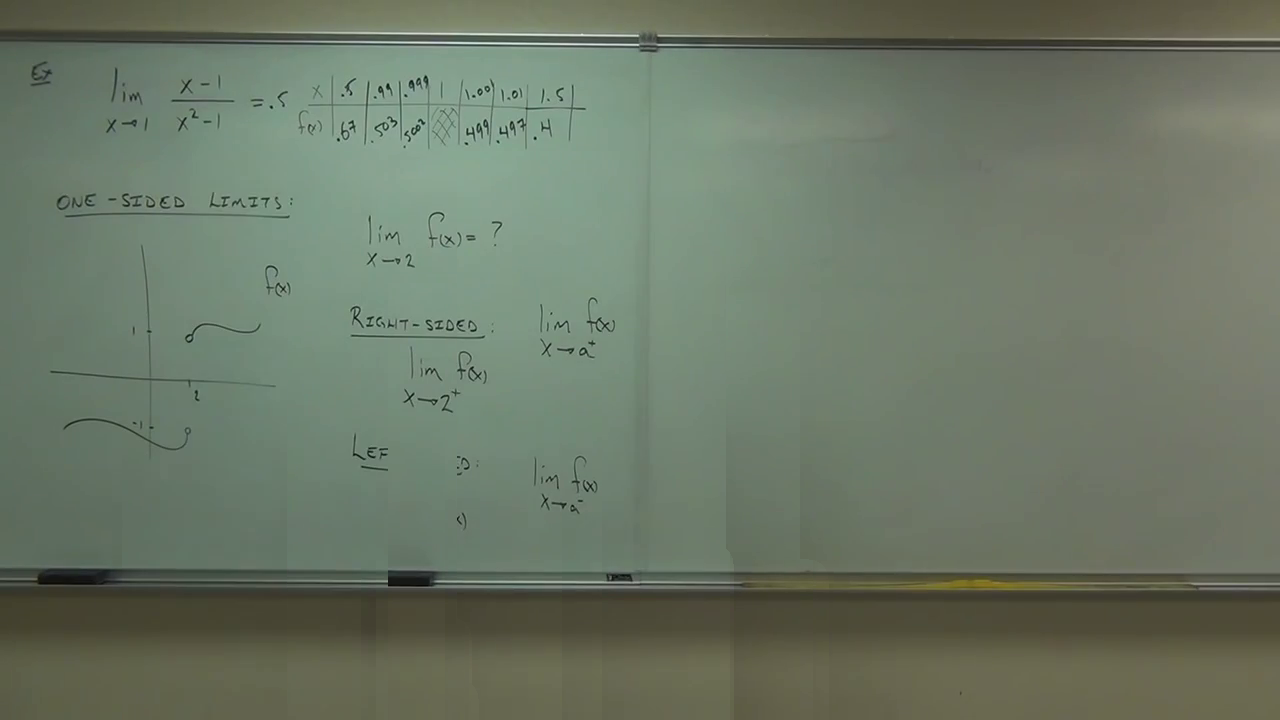 Ex lim x→1 x-1 / x²-1 = .5
x .5 .99 .999 1 1.001 1.01 1.5
f(x) .67 .503 .5002 .499 .497 .4
ONE-SIDED LIMITS:
lim x→2 f(x) = ?
f(x)
1
2
-1
RIGHT-SIDED: lim x→a⁺ f(x)
lim x→2⁺ f(x)
LEF D: lim x→a⁻ f(x)
x)